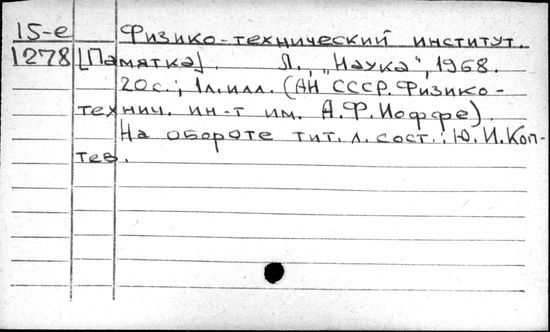 15-е Физико-технический институт.
1278 [Памятка]. Л., „Наука", 1968.
20с.; 1л.илл. (АН СССР. Физико-
технич. ин-т им. А.Ф.Иоффе).
На обороте тит. л. сост.: Ю.И.Коп-
тев.